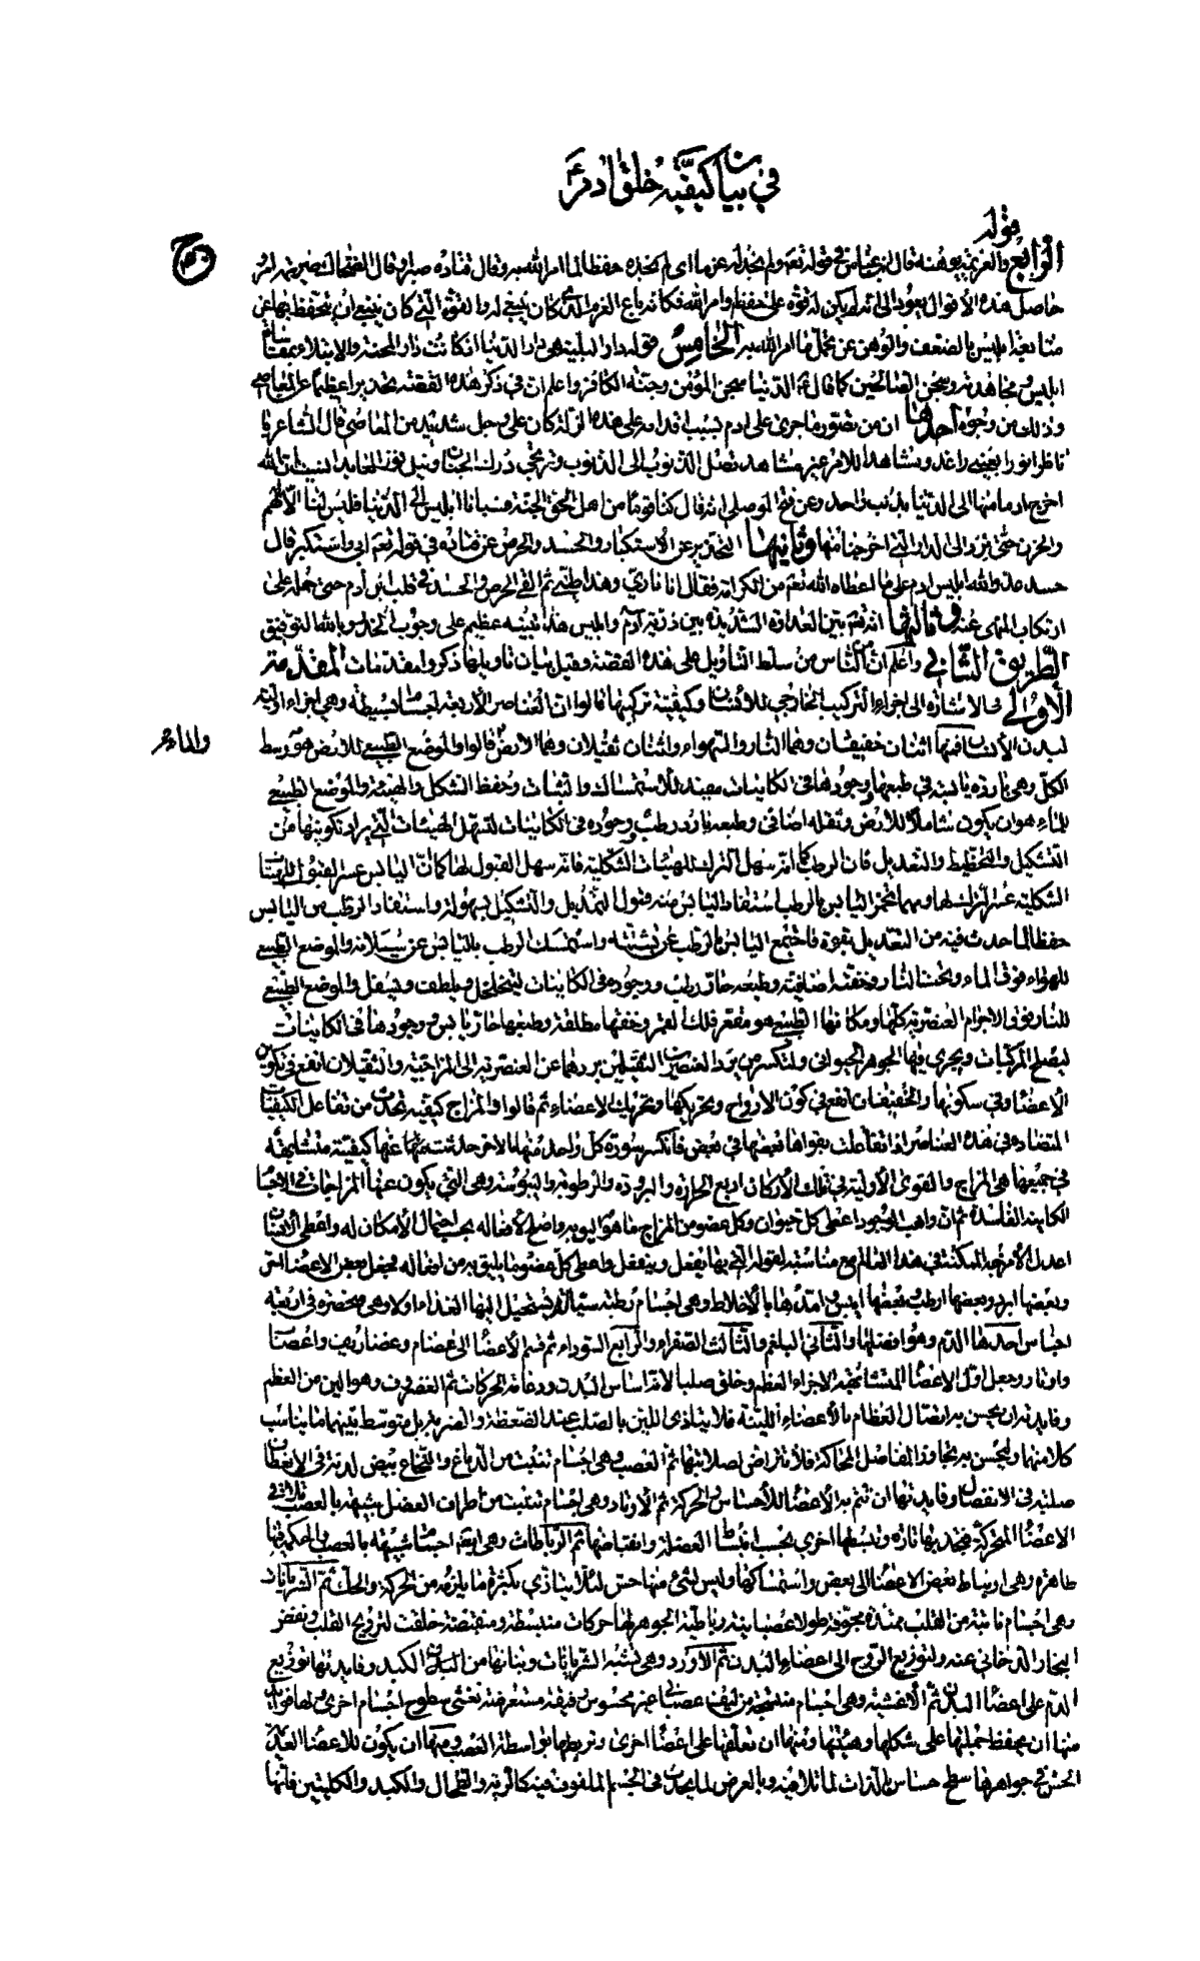 في بيان كيفية خلق ادم ع
قوله
الرابع والعزيمة بوهنه قال ابن عباس في قوله تعم ولم نجد له عزما اى لم نجد له حفظا لما امر الله به وقال قتادة صبرا وقال الضحاك
حاصل هذه الأقوال يعود الى انه لم يكن له قوة على حفظ ما امر الله فكانه باع العزم الذى كان ينبغى له والقوة التى كان ينبغى ان يتحفظ بها عن
متابعة ابليس بالضعف والوهن عن تحمل ما امر الله به الخامس قوله دار البلية هى دار الدنيا اذ كانت دار المحنة والابتلاء بمقاساة
ابليس ومجاهدته وسجن الصالحين كما قال ع الدنيا سجن المؤمن وجنة الكافر واعلم ان في ذكر هذه القصة تحذيرا عظيما عن المعاصى
وذلك من وجوه احدها ان من تصور ما جرى على ادم بسبب اقدامه على هذه الزلة كان على وجل شديد من المعاصى قال الشاعر يا
ناظرا يرنو بعينى راقد ومشاهدا للامر غير مشاهد تصل الذنوب الى الذنوب وترتجى درك الجنان ونيل فوز العابد انسيت ان الله
اخرج ادما منها الى الدنيا بذنب واحد وعن فتح الموصلى انه قال كنا قوما من اهل الجنة فسبانا ابليس الى الدنيا فليس لنا الا الهم
والحزن حتى نرد الى الدار التى اخرجنا منها وثانيها التحذير عن الاستكبار والحسد والحرص عن قتادة في قوله تعم ابى واستكبر قال
حسد عدو الله ابليس ادم على ما اعطاه الله تعم من الكرامة فقال انا نارى وهذا طينى ثم القى الحرص والحسد في قلب ابن ادم حتى حمله على
ارتكاب المنهى عنه وثالثها انه تعم بين العداوة الشديدة بين ذرية آدم وابليس هذا تنبيه عظيم على وجوب الحذر وبالله التوفيق
الطريق الثاني واعلم ان من الناس من سلط التاويل على هذه القصة وقبل بيان تاويلها ذكروا مقدمات المقدمة
الأولى في الاشارة الى اجزاء التركيب الخارجى للانسان وكيفية تركيبها قالوا ان العناصر الأربعة اجسام بسيطة وهى اجزاء اولية
لبدن الأنسان فمنها اثنان خفيفان وهما النار والهواء واثنان ثقيلان وهما الارض قالوا والموضع الطبيعى للارض هو وسط
والماء
الكل وهى باردة يابسة في طبعها ووجودها في الكاينات مفيد للاستمساك والثبات وحفظ الشكل والهيئة والموضع الطبيعى
للماء هو ان يكون شاملا للارض وثقله اضافى وطبعه بارد رطب ووجوده في الكاينات لتسهل الهيئات التى يراد تكوينها من
التشكيل والتخطيط والتعديل فان الرطب كما انه سهل الترك للهيئات الشكلية فانه سهل القبول لها كما ان اليابس عسر القبول للهيئات
الشكلية عسر الترك لها ومهما تخمر اليابس بالرطب استفاد اليابس منه قبول التمديل والتشكيل بسهولة واستفاد الرطب من اليابس
حفظا لما حدث فيه من التعديل بقوة فاجتمع اليابس بالرطب عن تشتته واستمسك الرطب باليابس عن سيلانه والموضع الطبيعى
للهواء فوق الماء وتحت النار وخفته اضافية وطبعه حار رطب ووجوده في الكاينات ليتخلخل ويلطف ويستقل والموضع الطبيعى
للنار فوق الاجرام العنصرية كلها ومكانها الطبيعى هو مقعر فلك القمر وخفتها مطلقة وطبعها حار يابس ووجودها في الكاينات
لينضج المركبات ويجرى فيها الجوهر الهوائى ولتكسر من برد العنصرين الثقيلين بردهما عن العنصرية الى المزاجية والثقيلان انفع في تكوين
الأعضاء وفي سكونها والخفيفان انفع في كون الارواح وتحريكها وتحريك الاعضاء ثم قالوا والمزاج كيفية تحدث من تفاعل الكيفيات
المتضادة في هذه العناصر اذا تفاعلت بقواها بعضها في بعض فانكسر سورة كل واحد منها بالاخر حدثت عنها كيفية متشابهة
في جميعها هى المزاج والقوى الأولية في تلك الأركان اربع الحرارة والبرودة والرطوبة واليبوسة وهى التى يكون عنها المزاجات في الاجسام
الكاينة الفاسدة ثم ان واهب الوجود اعطى كل حيوان وكل عضو من المزاج ما هو اليق به واصلح لأفعاله بحسب احتمال الأمكان له واعطى الانسان
اعدل الأمزجة الممكنة في هذا العالم مع مناسبته لقواه التى بها يفعل وينفعل واعطى كل عضو ما يليق به من افعاله فجعل بعض الاعضاء احر
وبعضها ابرد وبعضها ارطب وبعضها ايبس وامدها بالأخلاط وهى اجسام رطبة سيالة يستحيل اليها الغذاء اولا وهى منحصرة في اربعة
اجناس احدها الدم وهو افضلها والثاني البلغم والثالث الصفراء والرابع السوداء ثم قسم الأعضاء الى عظام وغضاريف واعصاب
واوتار وجعل اول الاعضاء المتشابهة الاجزاء العظم وخلق صلبا لانه اساس البدن ودعامة الحركات ثم الغضروف وهو الين من العظم
وفايدته ان يحسن به اتصال العظام بالأعضاء اللينة فلا يتاذى اللين بالصلب عند الضغطة والضربة بل يتوسط بينهما ما يناسب
كلا منهما وليحسن به تجاور المفاصل المحاكة فلا تتراض لصلابتها ثم العصب وهى اجسام تنبت من الدماغ والنخاع بيض لدنة في الانعطاف
صلبة في الانفصال وفايدتها ان تتم به الأعضاء للأحساس والحركة ثم الأوتار وهى اجسام تنبت من اطراف العضل شبيهة بالعصب تلاقى
الاعضاء المتحركة فتجذبها تارة وتبسطها اخرى بحسب انبساط العضلة وانقباضها ثم الرباطات وهى ايضا اجسام شبيهة بالعصب والحكمة فيها
ظاهرة وهى ارتباط بعض الاعضاء الى بعض واستمساكها وليس لشئ منها حس لئلا يتاذى بكثرة ما يلزمه من الحركة والحك ثم الشريانات
وهى اجسام نابتة من القلب ممتدة مجوفة طولا عصبانية رباطية الجوهر لها حركات منبسطة ومنقبضة خلقت لترويح القلب ونفض
البخار الدخانى عنه ولتوزيع الروح الى اعضاء البدن ثم الأوردة وهى تشبه الشريانات ونباتها من الكبد وفايدتها توزيع
الدم على اعضاء البدن ثم الأغشية وهى اجسام منتسجة من ليف عصبانى غير محسوس رقيقة مستعرضة تغشى سطوح اجسام اخرى ولها فوايد
منها ان يحفظ جملتها على شكلها وهيئتها ومنها ان تعلقها على اعضاء اخرى وتربطها بواسطة العصب ومنها ان يكون للاعضاء العديمة
الحس في جواهرها سطح حساس بالذات لما تلاقيه وبالعرض لما يحدث في الجسم الملفوف فيه كالرية والطحال والكبد والكليتين فانها